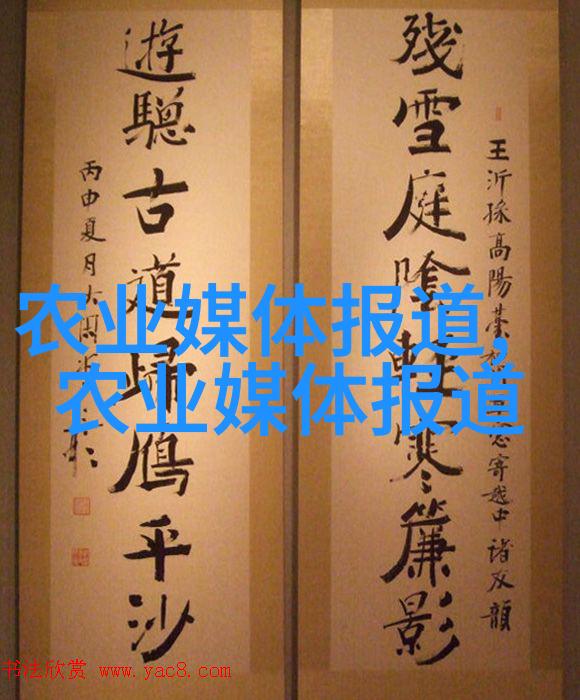 殘雪庭陰輕寒簾影
王沂孫高陽臺 寄越中諸友韻
遊驄古道歸鴈平沙
丙申夏月大
农业媒体报道,
农业媒体报道
书法欣赏 www.yac8.com